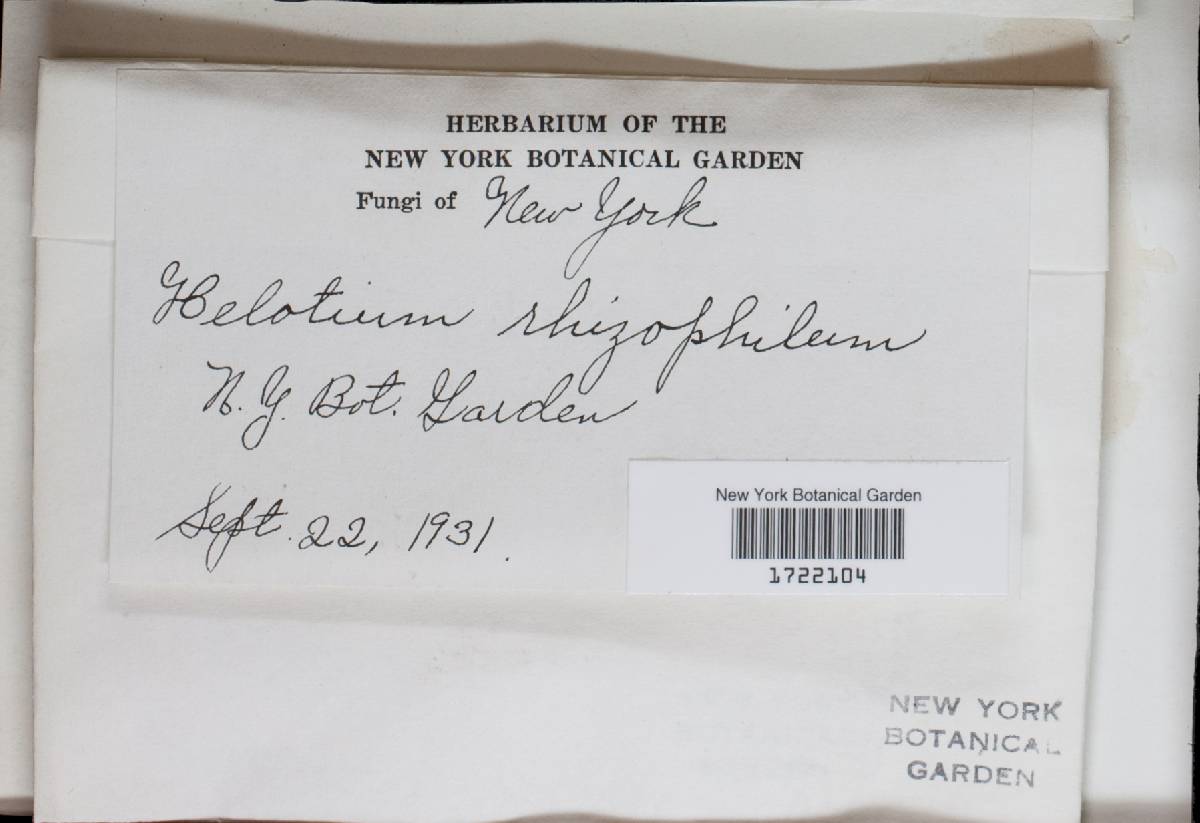 HERBARIUM OF THE
NEW YORK BOTANICAL GARDEN
Fungi of New York
Helotium rhizophilum
N. Y. Bot. Garden
Sept. 22, 1931.
New York Botanical Garden
1722104
NEW YORK
BOTANICAL
GARDEN